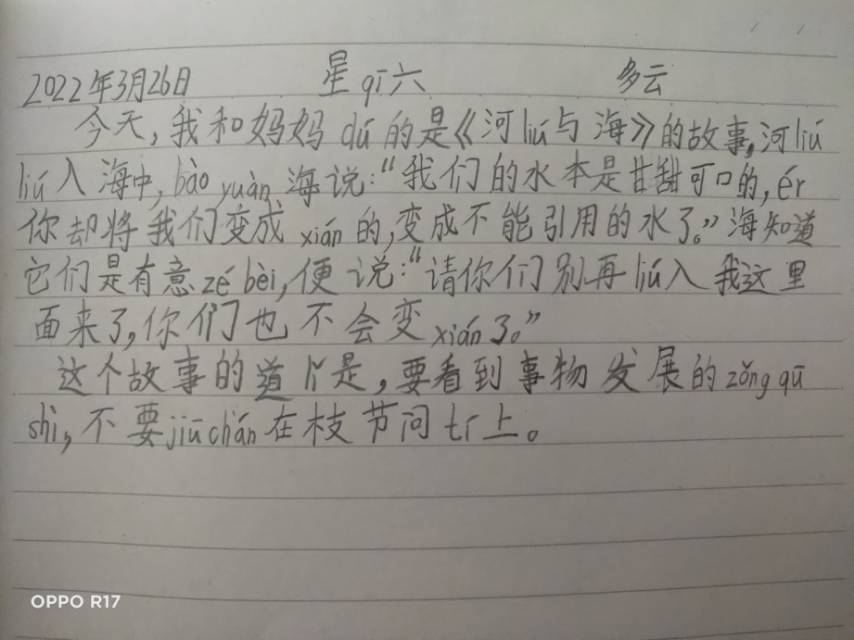 2022年3月26日 星qī六 多云
今天,我和妈妈dú的是《河liú与海》的故事,河liú
liú入海中,bào yuàn海说:“我们的水本是甘甜可口的,ér
你却将我们变成xián的,变成不能引用的水了。”海知道
它们是有意zé bèi,便说:“请你们别再liú入我这里
面来了,你们也不会变xián了。”
这个故事的道lǐ是,要看到事物发展的zǒng qū
shì,不要jiūchán在枝节问tí上。
OPPO R17